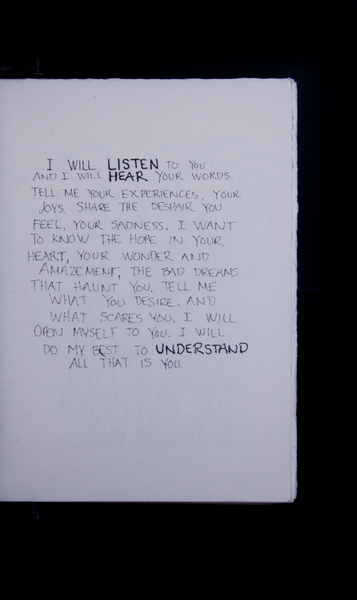 I WILL LISTEN TO YOU
AND I WILL HEAR YOUR WORDS.
TELL ME YOUR EXPERIENCES, YOUR
JOYS. SHARE THE DESPAIR YOU
FEEL, YOUR SADNESS. I WANT
TO KNOW THE HOPE IN YOUR
HEART, YOUR WONDER AND
AMAZEMENT, THE BAD DREAMS
THAT HAUNT YOU. TELL ME
WHAT YOU DESIRE, AND
WHAT SCARES YOU. I WILL
OPEN MYSELF TO YOU. I WILL
DO MY BEST TO UNDERSTAND
ALL THAT IS YOU.